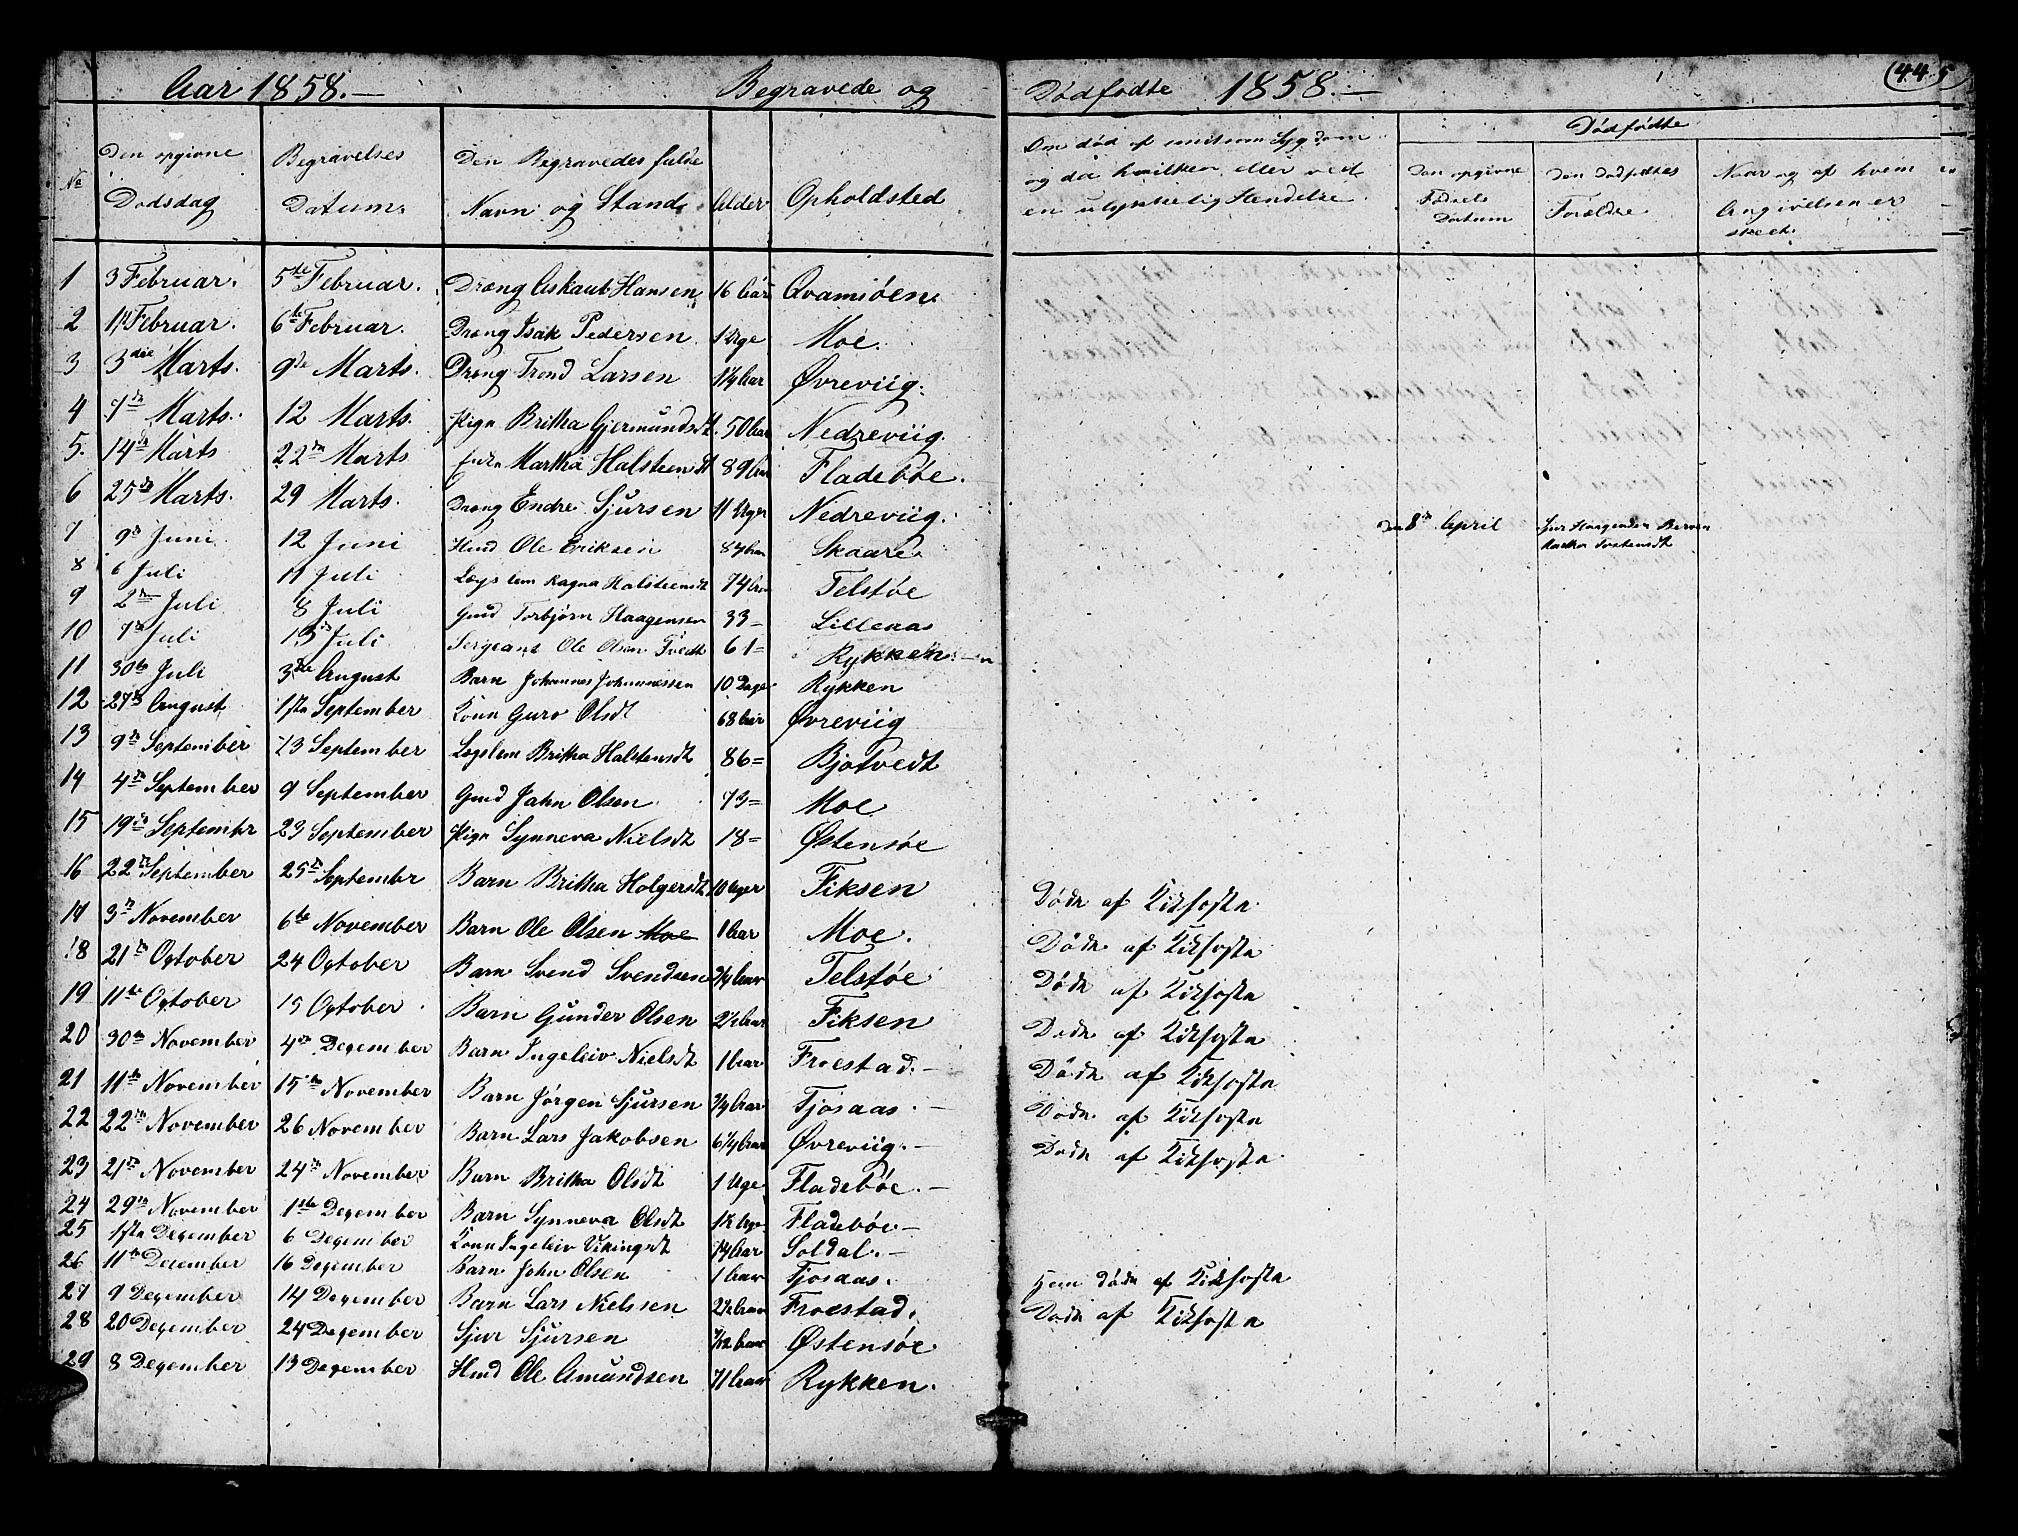 Aar 1858.— Begravede og Dødfødte 1858.— (44.5
No Den opgivne Dødsdag Begravelses Datum. Den Begravedes fulde Navn og Stand. Alder Opholdsted
Om død af smitsom Sygdom og da hvilken, eller ved en ulykkelig Hendelse.
Dødfødte
Den opgivne Fødsels Datum Den dødfødtes Forældre Naar og af hvem Angivelsen er skeet.
1 3 Februar. 5te Februar. Dreng Askaut Hansen 16 Aar Qvamsøen
2 1/4 Februar. 6te Februar. Dreng Isak Pedersen 1 Uge Moe.
3 3die Marts. 9de Marts. Dreng Trond Larsen 1 1/4 Aar Øvreviig.
4 7de Marts. 12 Marts. Pige Britha Gjermundsdt. 50 Aar Nedreviig.
5. 14de Marts 22de Marts Enke Martha Halsteensdt 89 Aar Fladebøe.
6 25de Marts. 29 Marts. Dreng Endre Sjursen 11 Uger Nedreviig. den 8de April Sjur Haagensen Berven
Martha Tostensdt
7 9de Juni 12 Juni Hmd Ole Eriksen 84 Aar Skaare
8 6 Juli 11 Juli Lægslem Ragna Halsteensdt 74 Aar Telstøe
9 2den Juli 8 Juli Gmd Torbjørn Haagensen 33 — Lillenas
10 7de Juli 13de Juli Sergeant Ole Olsen Tvedt 61 = Rykken.
11 30te Juli 3die August Barn Johannes Johannessen 10 Dage Rykken
12 27de August 1ste September Kone Guro Olsdt 68 Aar Øvreviig
13 9de September 13 September Lægslem Britha Halstensdt 86 = Bjotvedt
14 4de September 9 September Gmd Jahn Olsen 73 = Moe
15 19de Septembr 23 September Pige Synneva Nielsdt 18 = Østensøe
16 22de September 25de Septembr Barn Britha Holgersdt 10 Uger Fiksen Døde af Kikhoste
17 3de November 6te November Barn Ole Olsen Moe 1 Aar Moe. Døde af Kikhoste
18 21de October 24 October Barn Svend Svendsen 3/4 Aar Telstøe Døde af Kikhoste
19 11te October 15 October Barn Gunder Olsen 2 1/2 Aar Fiksen Døde af Kikhoste
20 30te November 4de Degember Barn Ingeleiv Nielsdt 1 Aar Froestad.— Døde af Kikhoste
21 11te November 15de November Barn Jørgen Sjursen 3/4 Aar Tjosaas.— Døde af Kikhoste
22 22de November 26 November Barn Lars Jakobsen 6 1/4 Aar Øvreviig.— Døde af Kikhoste
23 21de November 24de November Barn Britha Olsdt 1 Uge Fladebøe.—
24 29de November 1ste Degember Barn Synneva Olsdt Fladebøe—
25 1ste Degember 6 Degember Kone Ingeleiv Vikingsdt Aar Soldal.—
26 11te Degember 16 Degember Barn John Olsen 1 Aar Tjosaas. døde af Kikhoste
27 9 Degember 14 Degember Barn Lars Nielssen 2 1/2 Aar Froestad. Døde af Kikhoste
28 20 Degember 24 Degember Sjur Sjursen /12 Aar Østensøe
29 8 Degember 13 Degember Hmd Ole Amundsen 71 Aar Rykken.